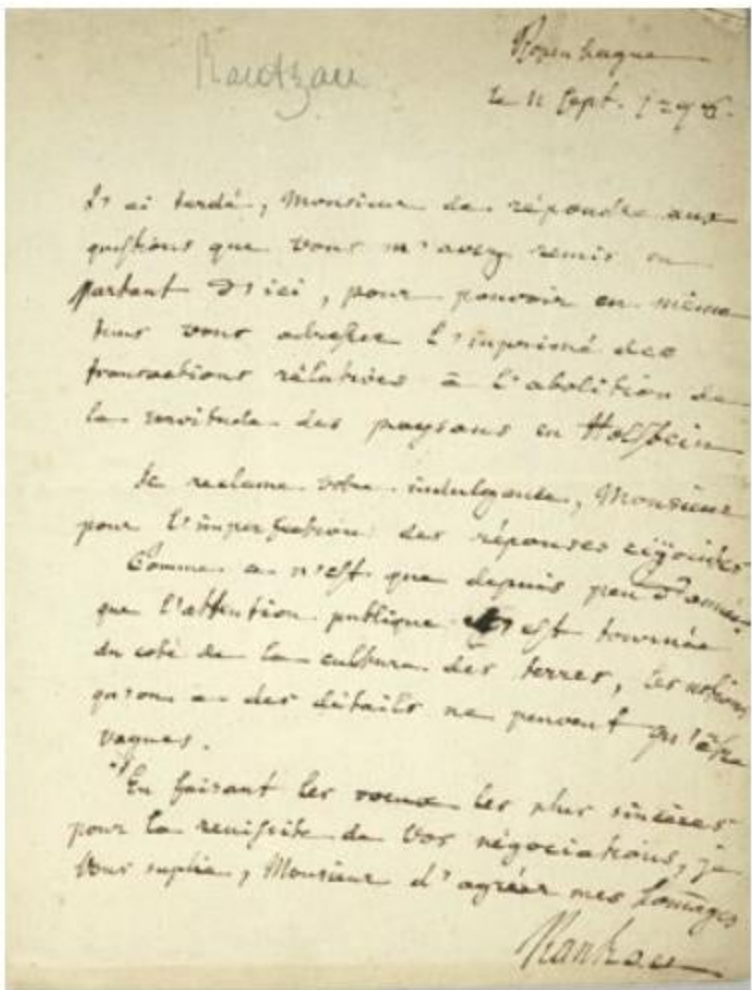 Rantzau
Kopenhague
le 11 Sept. 1796.
J'ai tardé, Monsieur de répondre aux
questions que vous m'avez remis en
partant d'ici, pour pouvoir en même
tems vous adresser l'imprimé des
transactions rélatives à l'abolition de
la servitude des paysans en Holstein
Je reclame votre indulgence, Monsieur
pour l'imperfection des réponses cijointes
Comme ce n'est que depuis peu d'années
que l'attention publique s'est tournée
du coté de la culture des terres, les notions
qu'on a des détails ne peuvent qu'être
vagues.
En faisant les voeux les plus sincères
pour la reussite de vos négociations, je
vous suplie, Monsieur d'agréer mes homages
Rantzau